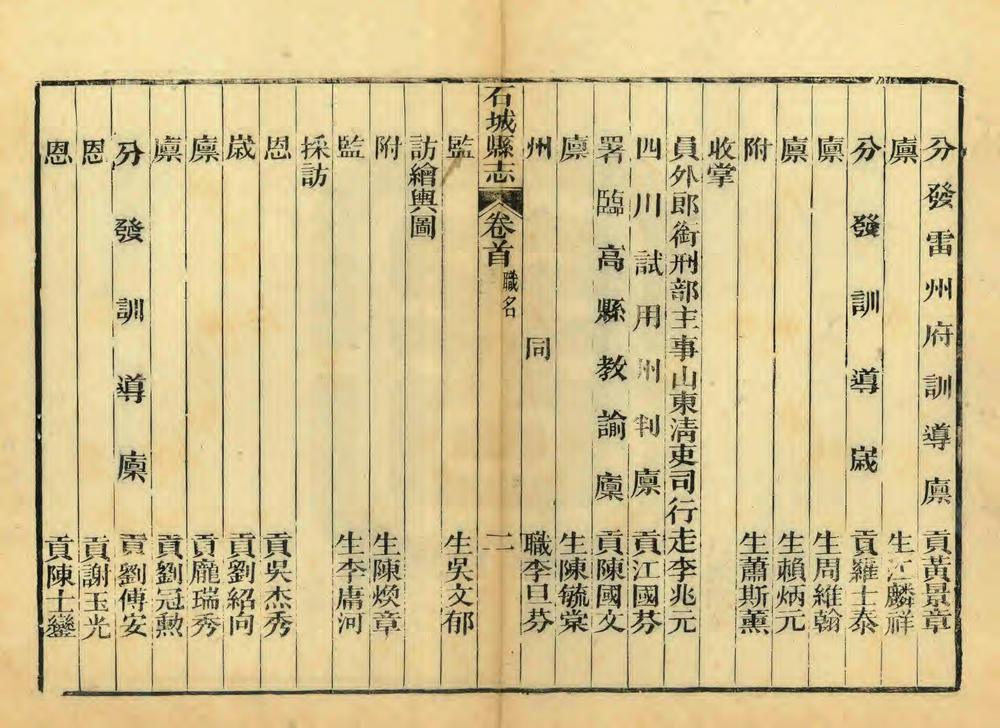 分發雷州府訓導廩貢黃景章
廩生江麟祥
分發訓導歲貢羅士泰
廩生周維翰
廩生賴炳元
附生蕭斯薰
收掌
員外郎銜刑部主事山東清吏司行走李兆元
四川試用州判廩貢江國芬
署臨高縣教諭廩貢陳國文
廩生陳毓棠
州同職李曰芬
石城縣志 卷首 職名 二
監生吳文郁
訪繪輿圖
附生陳煥章
監生李庸河
採訪
恩貢吳杰秀
歲貢劉紹向
廩貢龐瑞秀
廩貢劉冠勲
分發訓導廩貢劉傳安
恩貢謝玉光
恩貢陳士